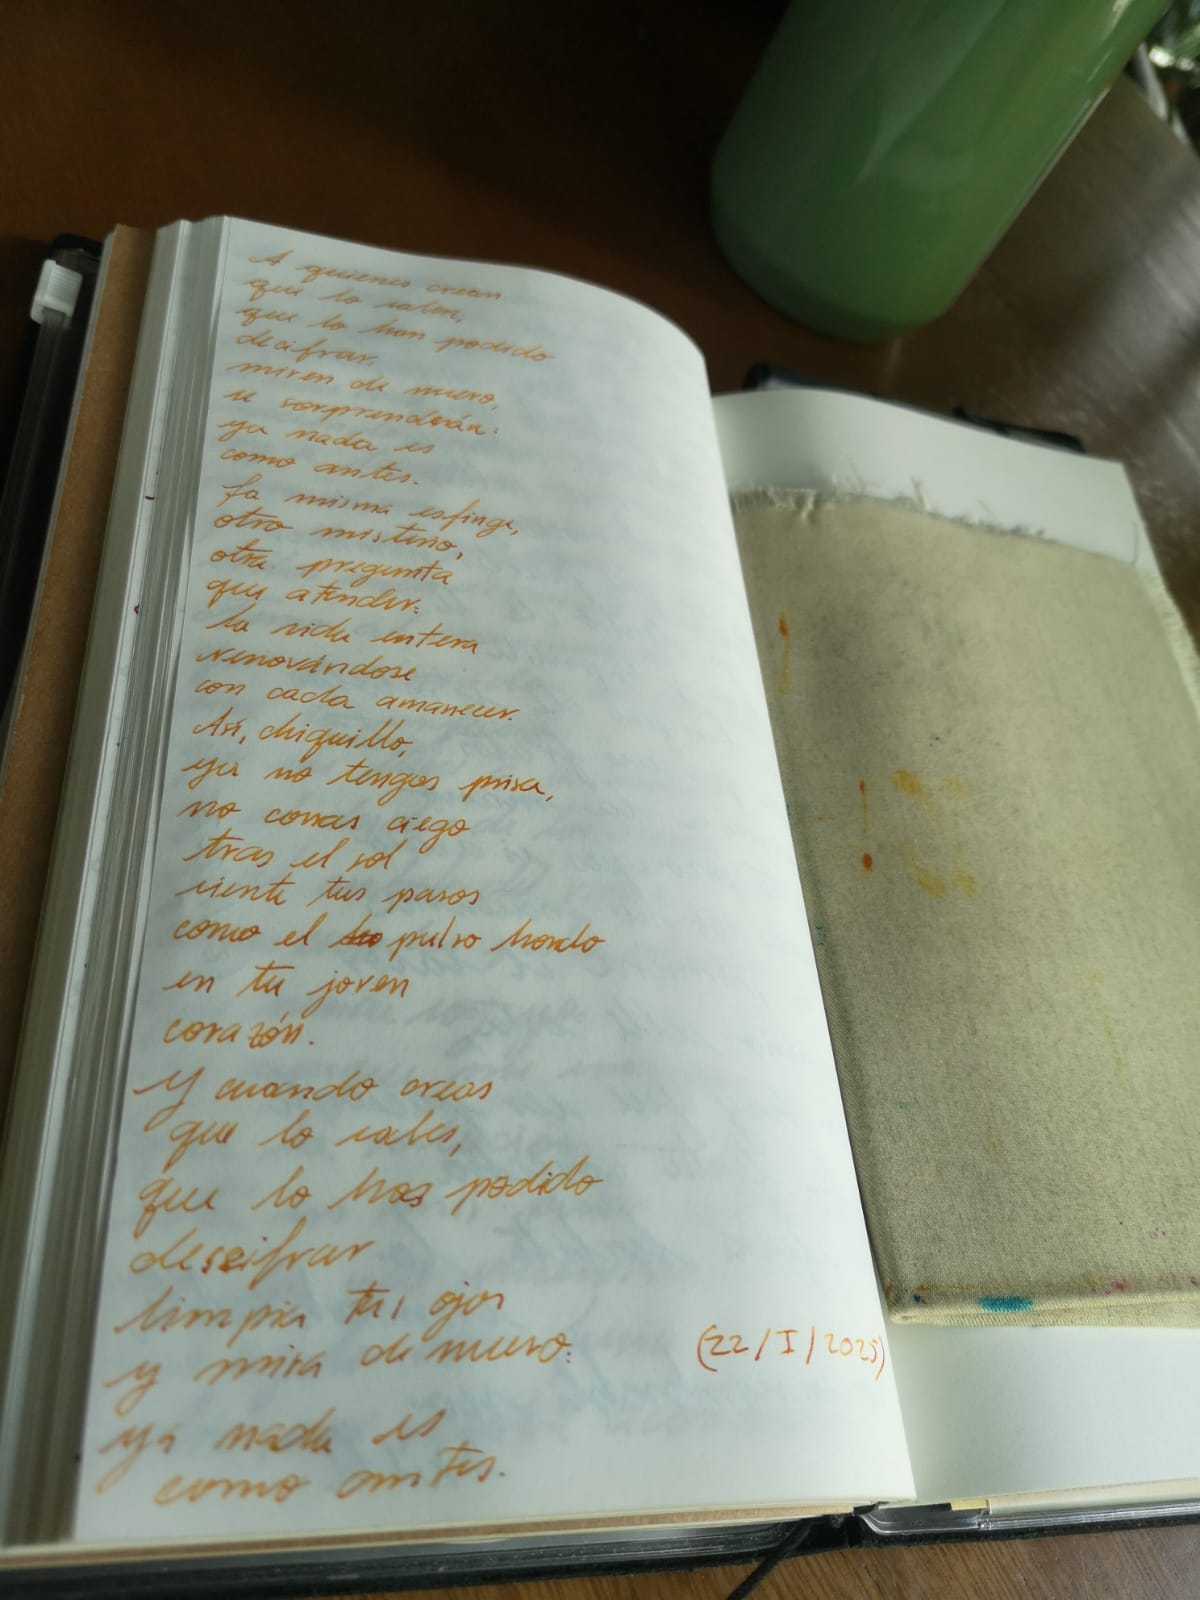 A quienes crean
que lo saben,
que lo han podido
decifrar.
miren de nuevo,
se sorprenderán:
ya nada es
como antes.
La misma esfinge,
otro misterio,
otra pregunta
que atender:
la vida entera
renovándose
con cada amanecer.
Así, chiquillo,
ya no tengas prisa,
no corras ciego
tras el sol
siente tus pasos
como el pulso hondo
en tu joven
corazón.
Y cuando creas
que lo sabes,
que lo has podido
descifrar
limpia tus ojos
y mira de nuevo:
(22/I/2025)
ya nada es
como antes.